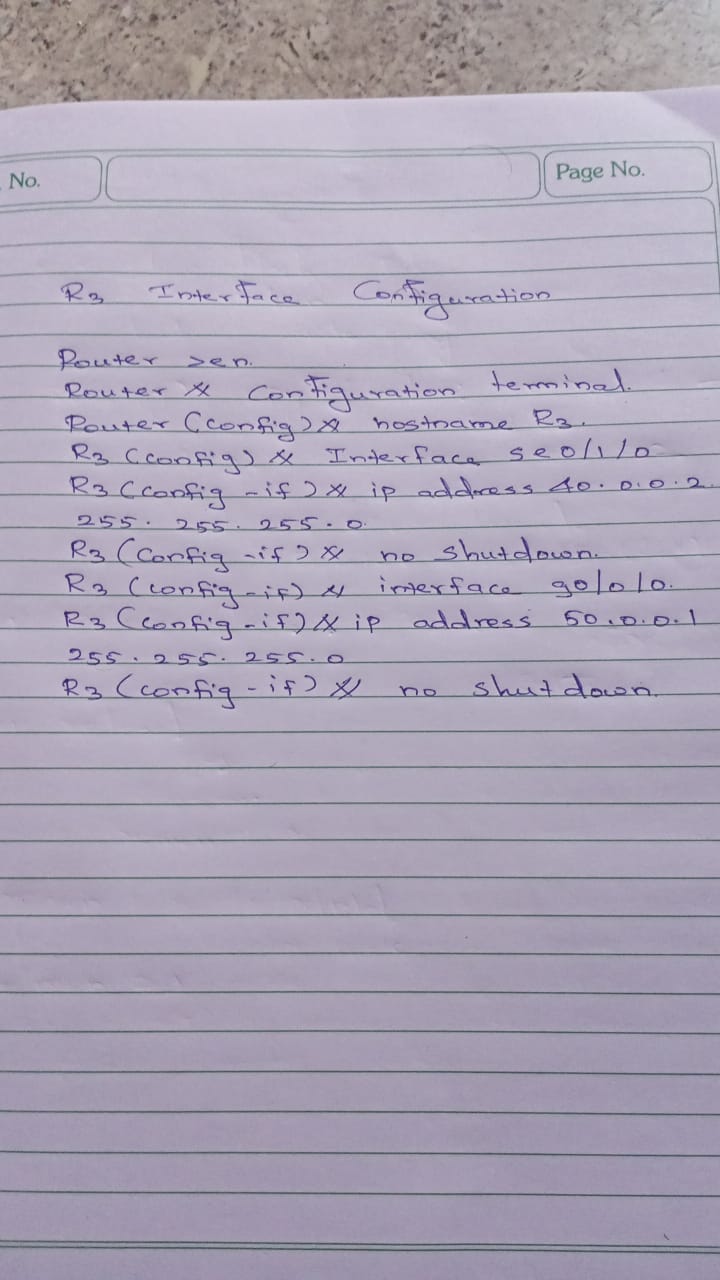 No.
Page No.
R3 Interface Configuration
Router >en.
Router # Configuration terminal.
Router (config)# hostname R3.
R3 (config) # Interface se0/1/0
R3 (config -if)# ip address 40.0.0.2
255. 255. 255.0.
R3 (config -if)# no shutdown.
R3 (config-if) # interface g0/0/0.
R3 (config-if)# ip address 50.0.0.1
255.255.255.0
R3 (config-if)# no shutdown.